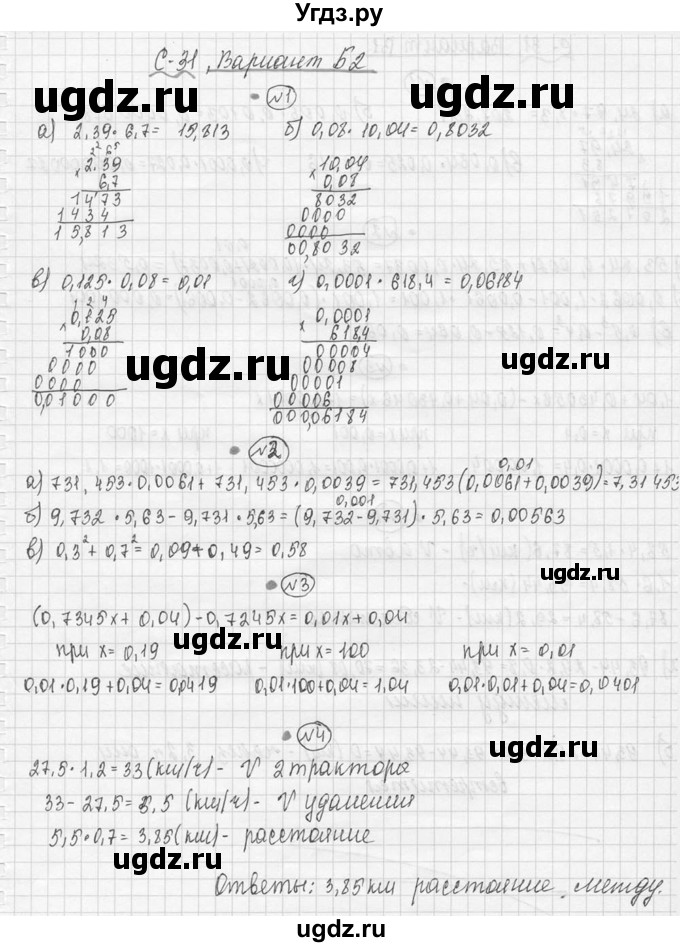 Угдз.ру
С-31, Вариант Б2
№1
а) 2,39·6,7= 15,813 б) 0,08·10,04=0,8032
2 6 5
×2,39
6,7
1473
1434
15,813
×10,04
0,08
8032
0000
0000
00,8032
в) 0,125·0,08=0,01 г) 0,0001·618,4=0,06184
1 2 4
×0,125
0,08
1000
0000
0000
0,01000
×0,0001
618,4
00004
00008
00001
00006
000,06184
№2
0,01
а) 731,453·0,0061+731,453·0,0039=731,453(0,0061+0,0039)=7,31453
0,001
б) 9,732·5,63-9,731·5,63=(9,732-9,731)·5,63=0,00563
в) 0,3²+0,7²=0,09+0,49=0,58
№3
(0,7345x+0,04)-0,7245x=0,01x+0,04
при x=0,19 при x=100 при x=0,01
0,01·0,19+0,04=0,0419 0,01·100+0,04=1,04 0,01·0,01+0,04=0,0401
№4
27,5·1,2=33(км/ч)- V 2трактора
33-27,5=5,5(км/ч)- V удаления
5,5·0,7=3,85(км)- расстояние
Ответы: 3,85км расстояние между.
ugdz.ru
ugdz.ru
ugdz.ru
ugdz.ru
ugdz.ru
ugdz.ru
ugdz.ru
ugdz.ru
ugdz.ru
ugdz.ru
ugdz.ru
ugdz.ru
ugdz.ru